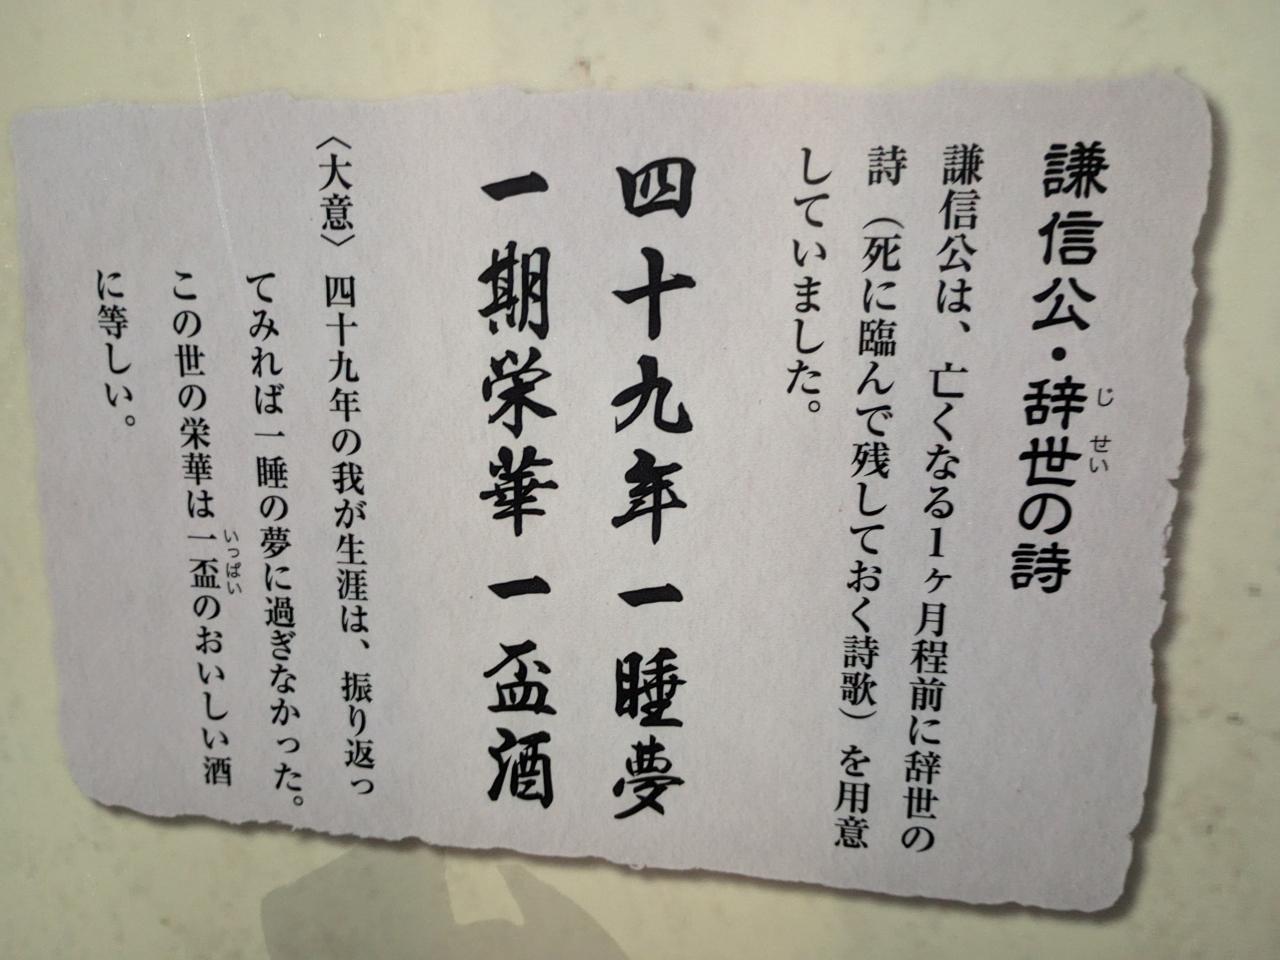 謙信公・辞世の詩
じせい
謙信公は、亡くなる1ヶ月程前に辞世の
詩（死に臨んで残しておく詩歌）を用意
していました。
四十九年一睡夢
一期栄華一盃酒
〈大意〉四十九年の我が生涯は、振り返っ
てみれば一睡の夢に過ぎなかった。
この世の栄華は一盃のおいしい酒
いっぱい
に等しい。